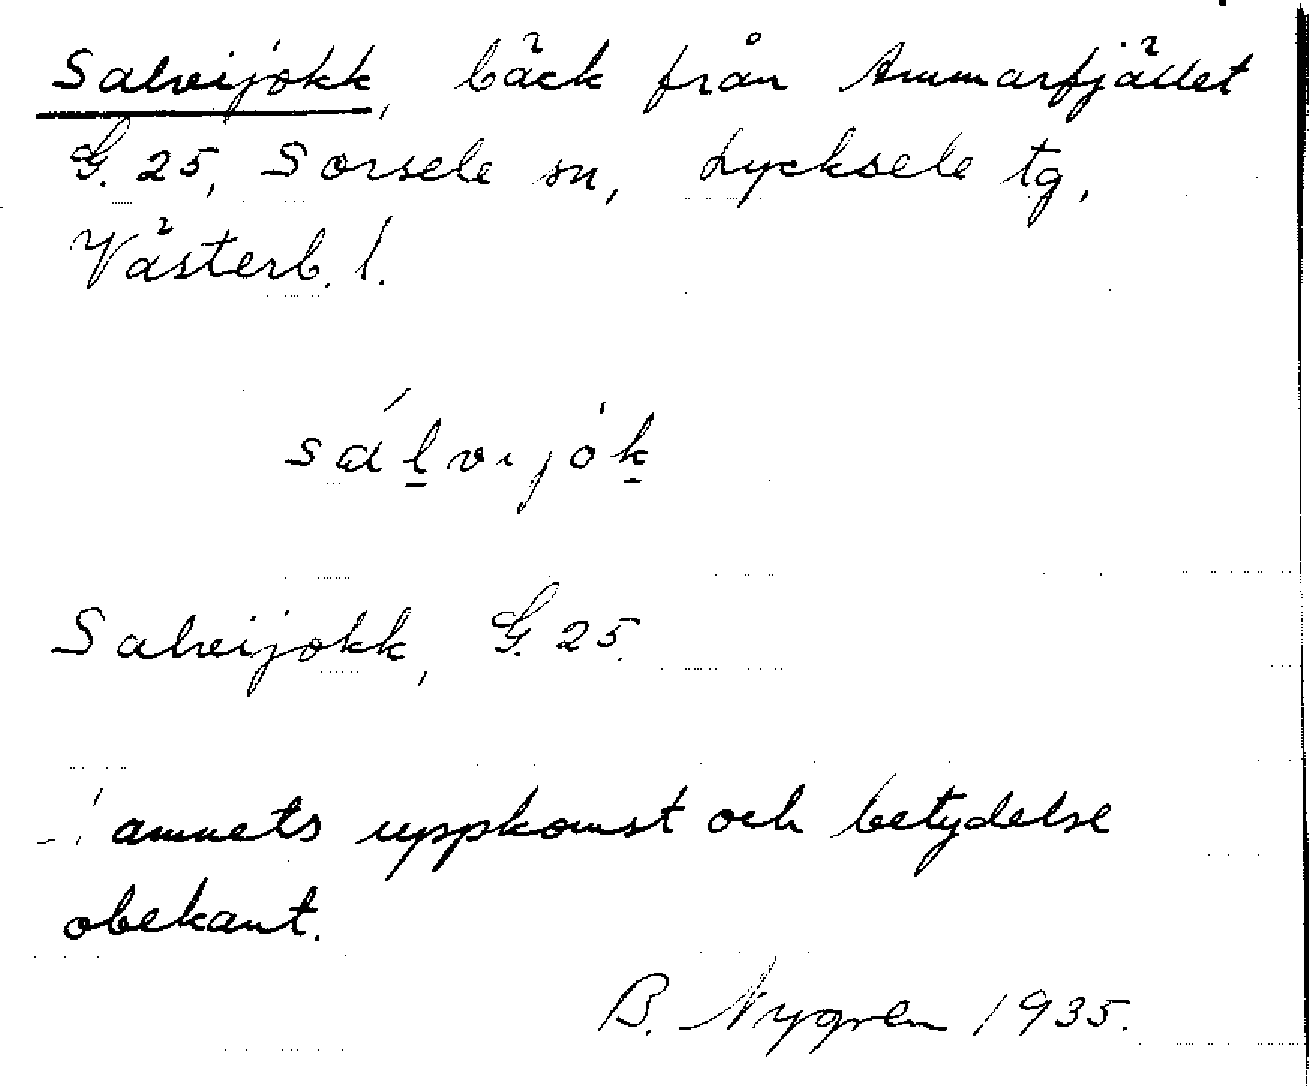 Salveijokk, bäck från Ammarfjället
G. 25, Sorsele sn, Lycksele tg,
Västerb. l.
sálvijók
Salveijokk, G. 25.
Namnets uppkomst och betydelse
obekant.
B. Nygren 1935.